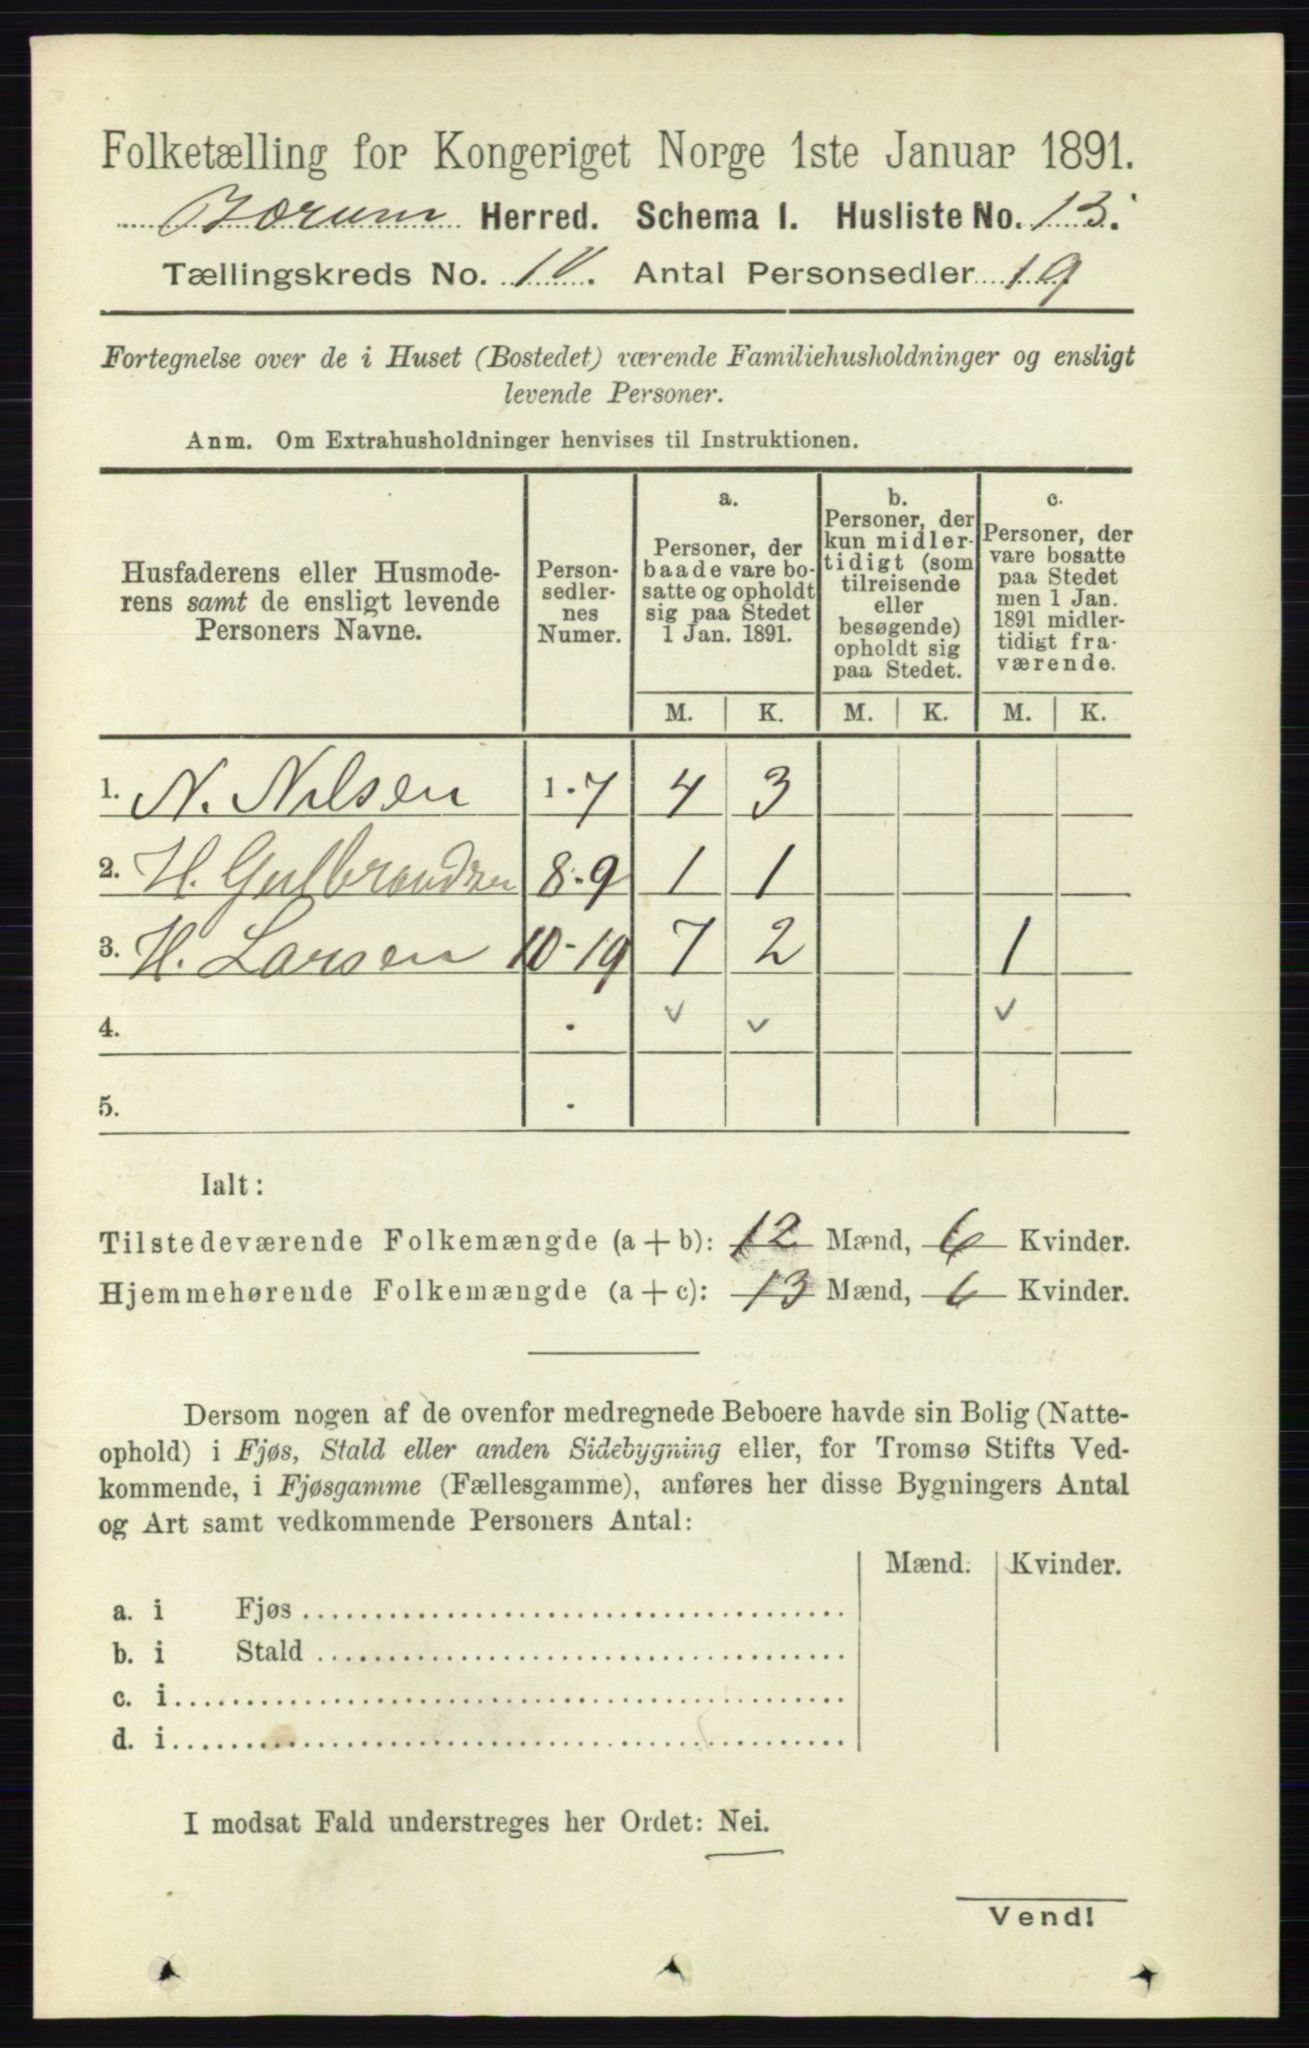 Folketælling for Kongeriget Norge 1ste Januar 1891.
Bærum Herred. Schema 1. Husliste No. 13.
Tællingskreds No. . Antal Personsedler 19
Fortegnelse over de i Huset (Bostedet) værende Familiehusholdninger og ensligt
levende Personer.
Anm. Om Extrahusholdninger henvises til Instruktionen.
Husfaderens eller Husmode-
rens samt de ensligt levende
Personers Navne.
Person-
sedler-
nes
Numer.
a.
Personer, der
baade vare bo-
satte og opholdt
sig paa Stedet
1 Jan. 1891.
b.
Personer, der
kun midler-
tidigt (som
tilreisende
eller
besøgende)
opholdt sig
paa Stedet.
c.
Personer, der
vare bosatte
paa Stedet
men 1 Jan.
1891 midler-
tidigt fra-
værende.
M. K. M. K. M. K.
1. N. Nilsen 1-7 4 3
2. H. Gulbrandsen 8-9 1 1
3. H. Larsen 10-19 7 2 1
4. . ✓ ✓ ✓
5. .
Ialt:
Tilstedeværende Folkemængde (a + b): 12 Mænd, 6 Kvinder.
Hjemmehørende Folkemængde (a + c): 13 Mænd, 6 Kvinder.
Dersom nogen af de ovenfor medregnede Beboere havde sin Bolig (Natte-
ophold) i Fjøs, Stald eller anden Sidebygning eller, for Tromsø Stifts Ved-
kommende, i Fjøsgamme (Fællesgamme), anføres her disse Bygningers Antal
og Art samt vedkommende Personers Antal:
Mænd. Kvinder.
a. i Fjøs
b. i Stald
c. i
d. i
I modsat Fald understreges her Ordet: Nei.
Vend!